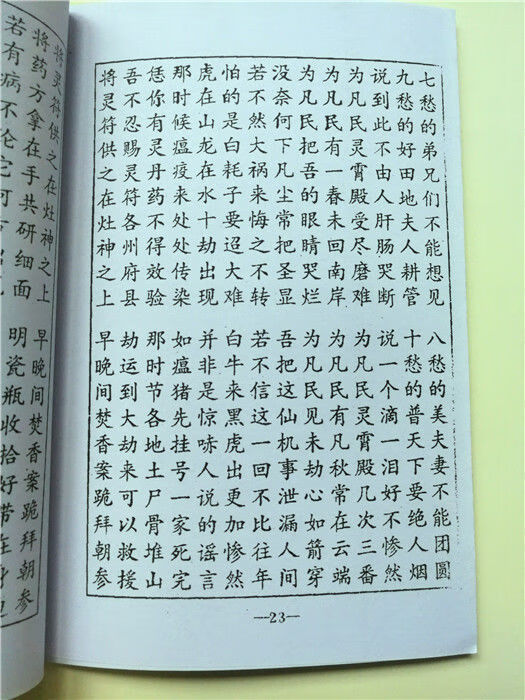 七愁的弟兄们不能想见 八愁的美夫妻不能团圆
九愁的好田地夫人耕管 十愁的普天下要绝人烟
说到此不由人肝肠哭断 说一个滴一泪好不惨然
为凡民灵霄殿受尽磨难 为凡民灵霄殿几次三番
为凡民有一春未回南岸 为凡民有凡秋常在云端
为凡民把吾的眼睛哭烂 为凡民见未劫心如箭穿
没奈何下凡尘常把圣显 吾把这仙机事泄漏人间
若不然大祸来悔之不转 若不信这一回不比往年
怕的是白耗子要迢大难 白牛来黑虎出更加惨然
虎在山龙在水十劫出现 并非是惊味人说的谣言
那时候瘟疫来处处传染 如瘟猪先挂号一家死完
恁你有灵丹药不得效验 那时节各地土尸骨堆山
吾不忍赐灵符各州府县 劫运到大劫来可以救援
将灵符供之在灶神之上 早晚间焚香案跪拜朝参
—23—
将灵符供之在灶神之上 早晚间焚香案跪拜朝参
将药方拿在手共研细面 明瓷瓶收拾好带在身
若有病不论它何